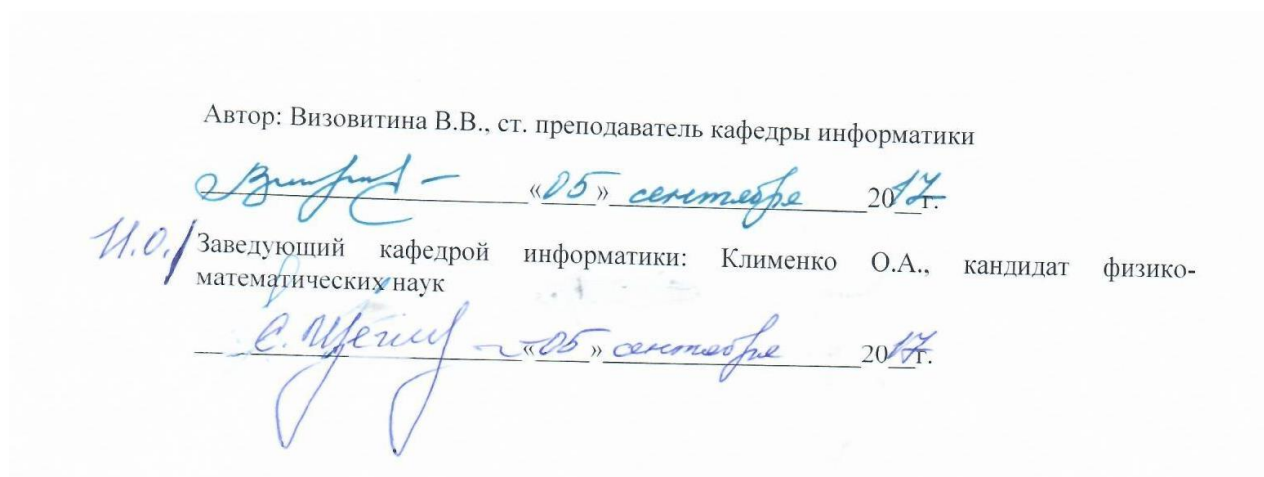 Автор: Визовитина В.В., ст. преподаватель кафедры информатики
«05» сентября 2017г.
И.О. Заведующий кафедрой информатики: Клименко О.А., кандидат физико-
математических наук
«05» сентября 2017г.